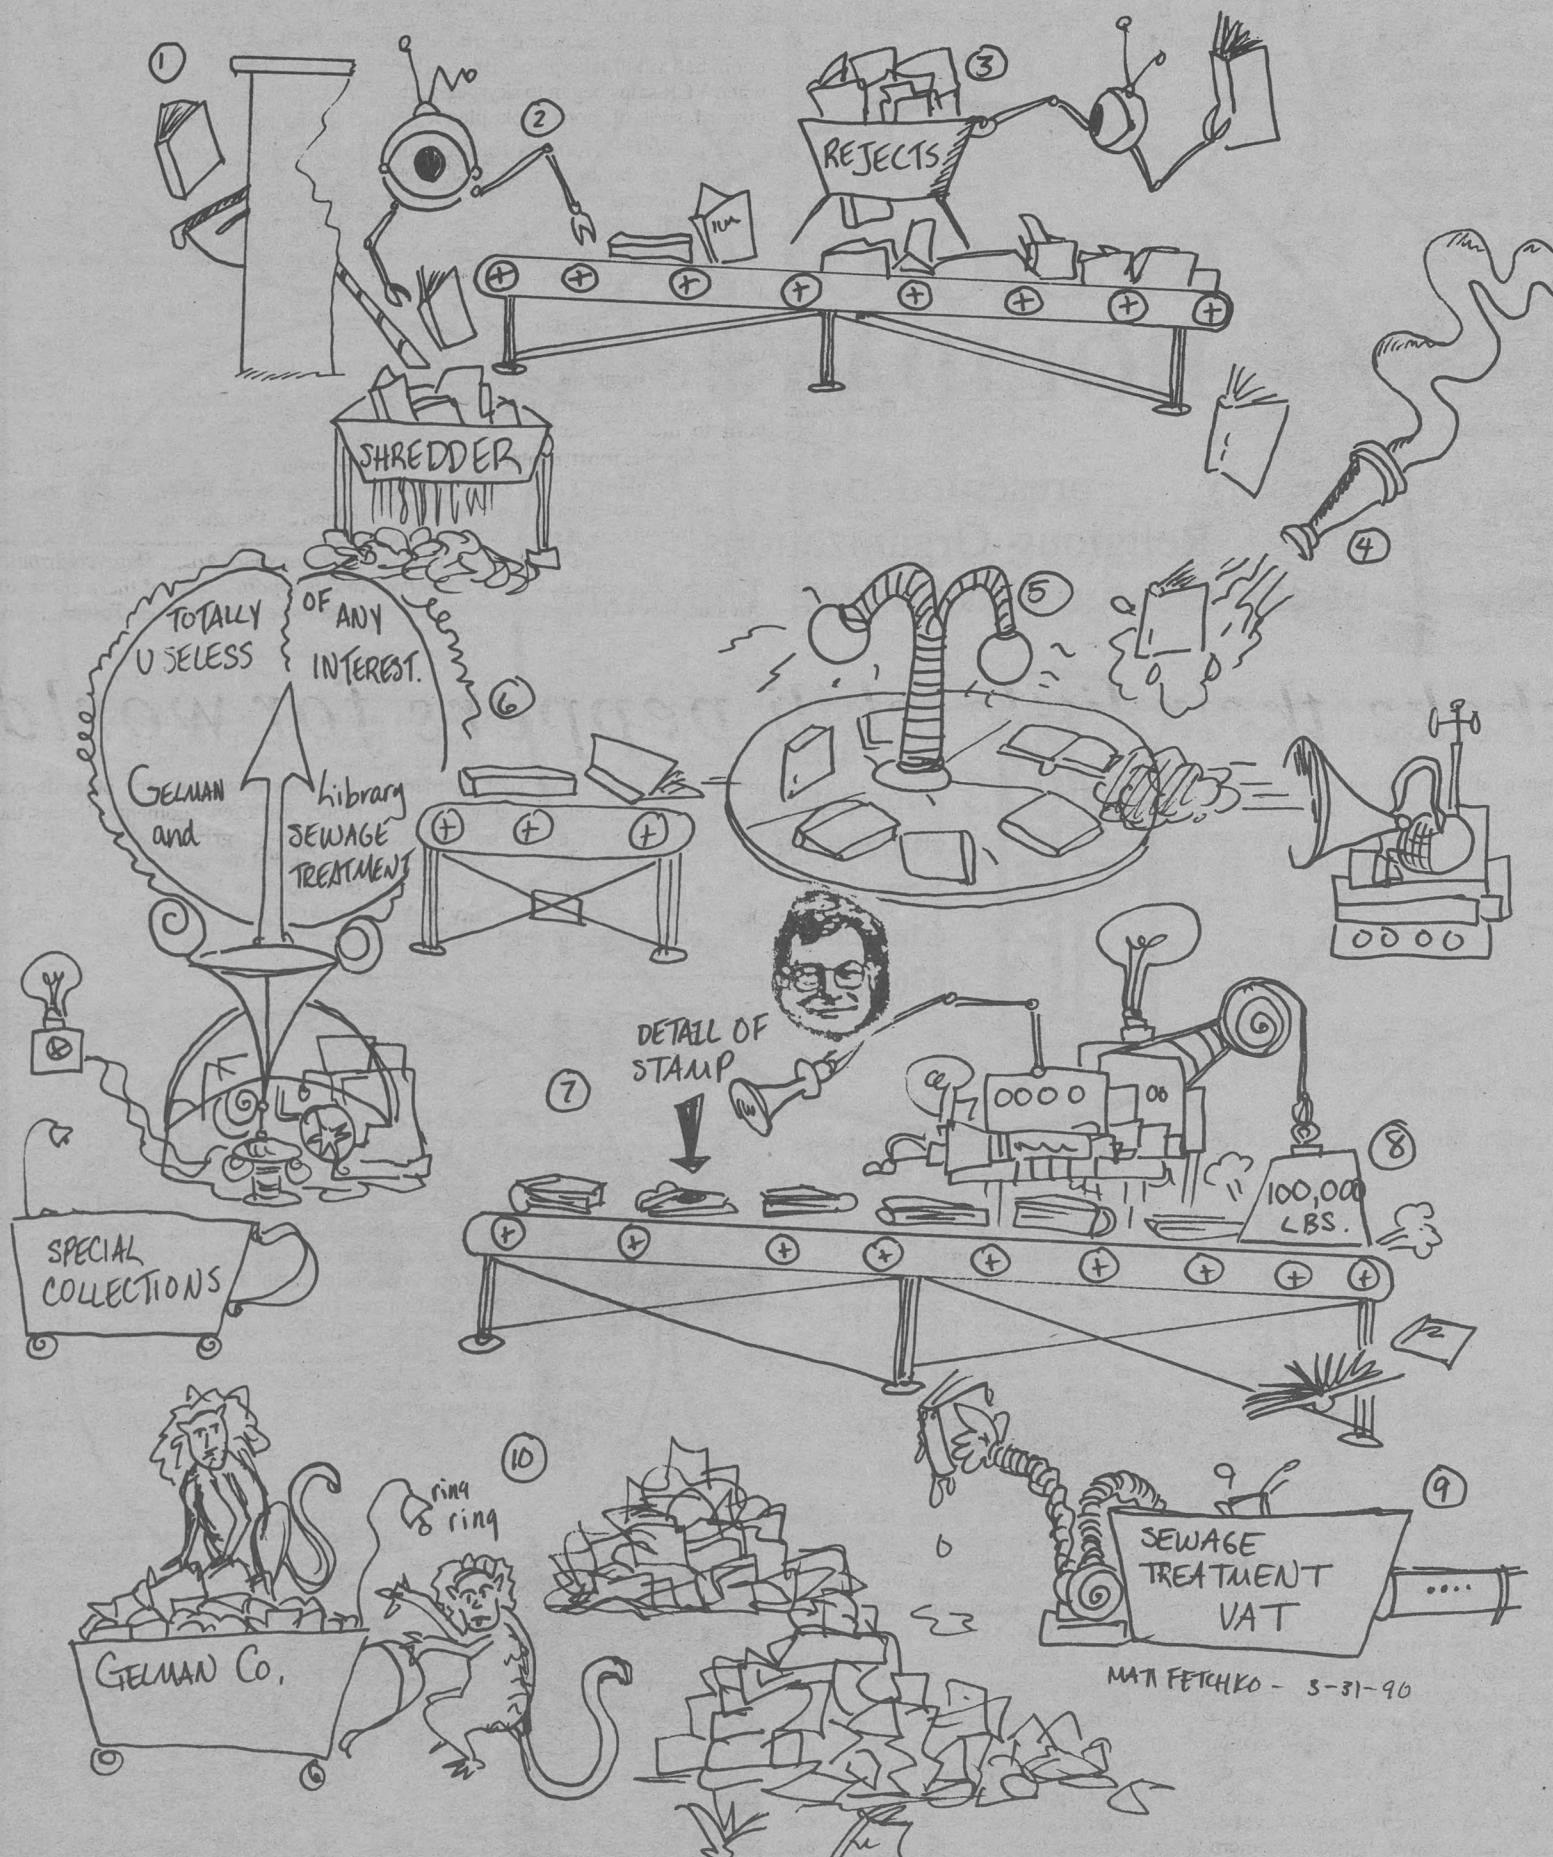 1
2
3
REJECTS
SHREDDER
4
5
TOTALLY
USELESS
OF
ANY
INTEREST.
6
GELMAN
and
Library
SEWAGE
TREATMENT
DETAIL OF
STAMP
7
8
100,000
LBS.
SPECIAL
COLLECTIONS
10
ring
ring
9
SEWAGE
TREATMENT
VAT
GELMAN CO.
MATT FETCHKO - 3-31-90